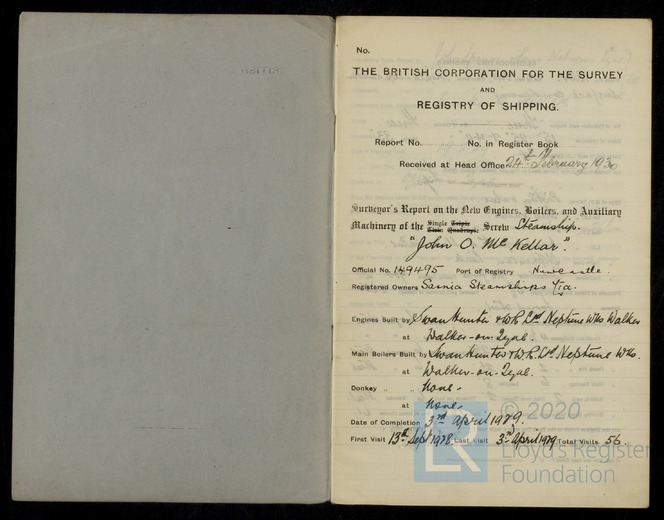 No.
THE BRITISH CORPORATION FOR THE SURVEY
AND
REGISTRY OF SHIPPING.
Report No. No. in Register Book
Received at Head Office 24th February 1930
Surveyor's Report on the New Engines, Boilers, and Auxiliary
Machinery of the Single Triple Twin Quadruple Screw Steamship.
"John O. McKellar."
Official No. 149495 Port of Registry Newcastle.
Registered Owners Sarnia Steamships Ltd.
Engines Built by Swan Hunter & W.R. Ltd Neptune Wks Walker
at Walker-on-Tyne.
Main Boilers Built by Swan Hunter & W.R. Ltd Neptune Wks.
at Walker-on-Tyne.
Donkey " " None.
at None.
Date of Completion 3rd April 1929.
First Visit 13th Sept 1928 Last Visit 3rd April 1929 Total Visits 56.
LR © 2020
Lloyd's Register
Foundation